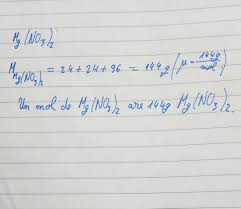 Mg(NO3)2
M Mg(NO3)2 = 24 + 24 + 96 = 144g (μ = 144g/mol)
Un mol de Mg(NO3)2 are 144g Mg(NO3)2.